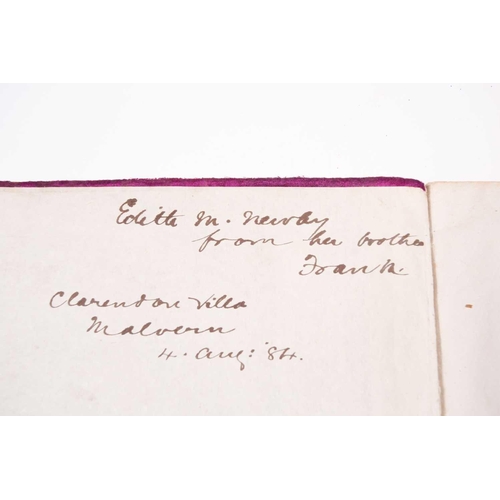 Edith M. Newby
from her brother
Frank.
Clarendon Villa
Malvern
4. Aug: 84.